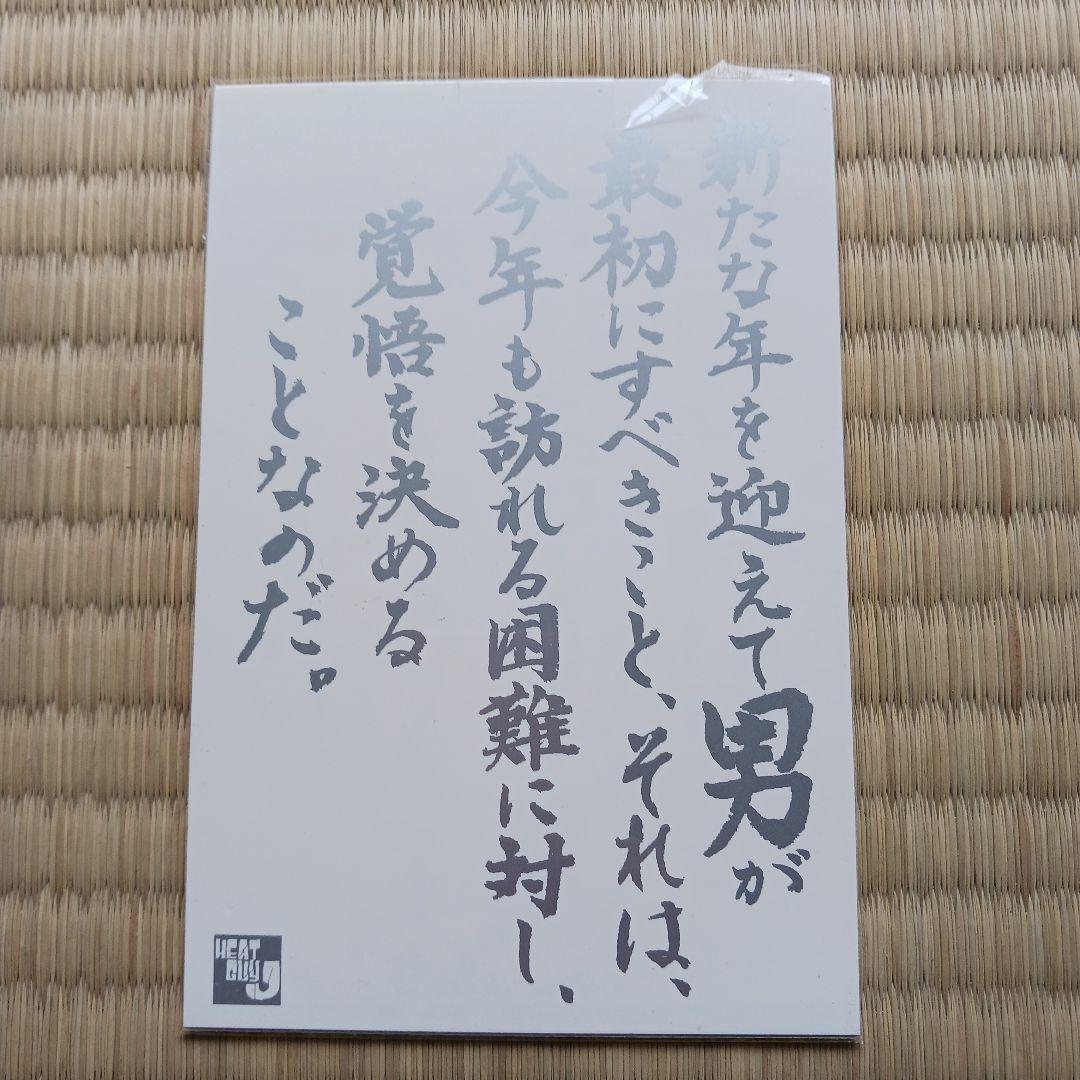 新たな年を迎えて男が
最初にすべきこと、それは、
今年も訪れる困難に対し、
覚悟を決める
ことなのだ。
HEAT
GUY J